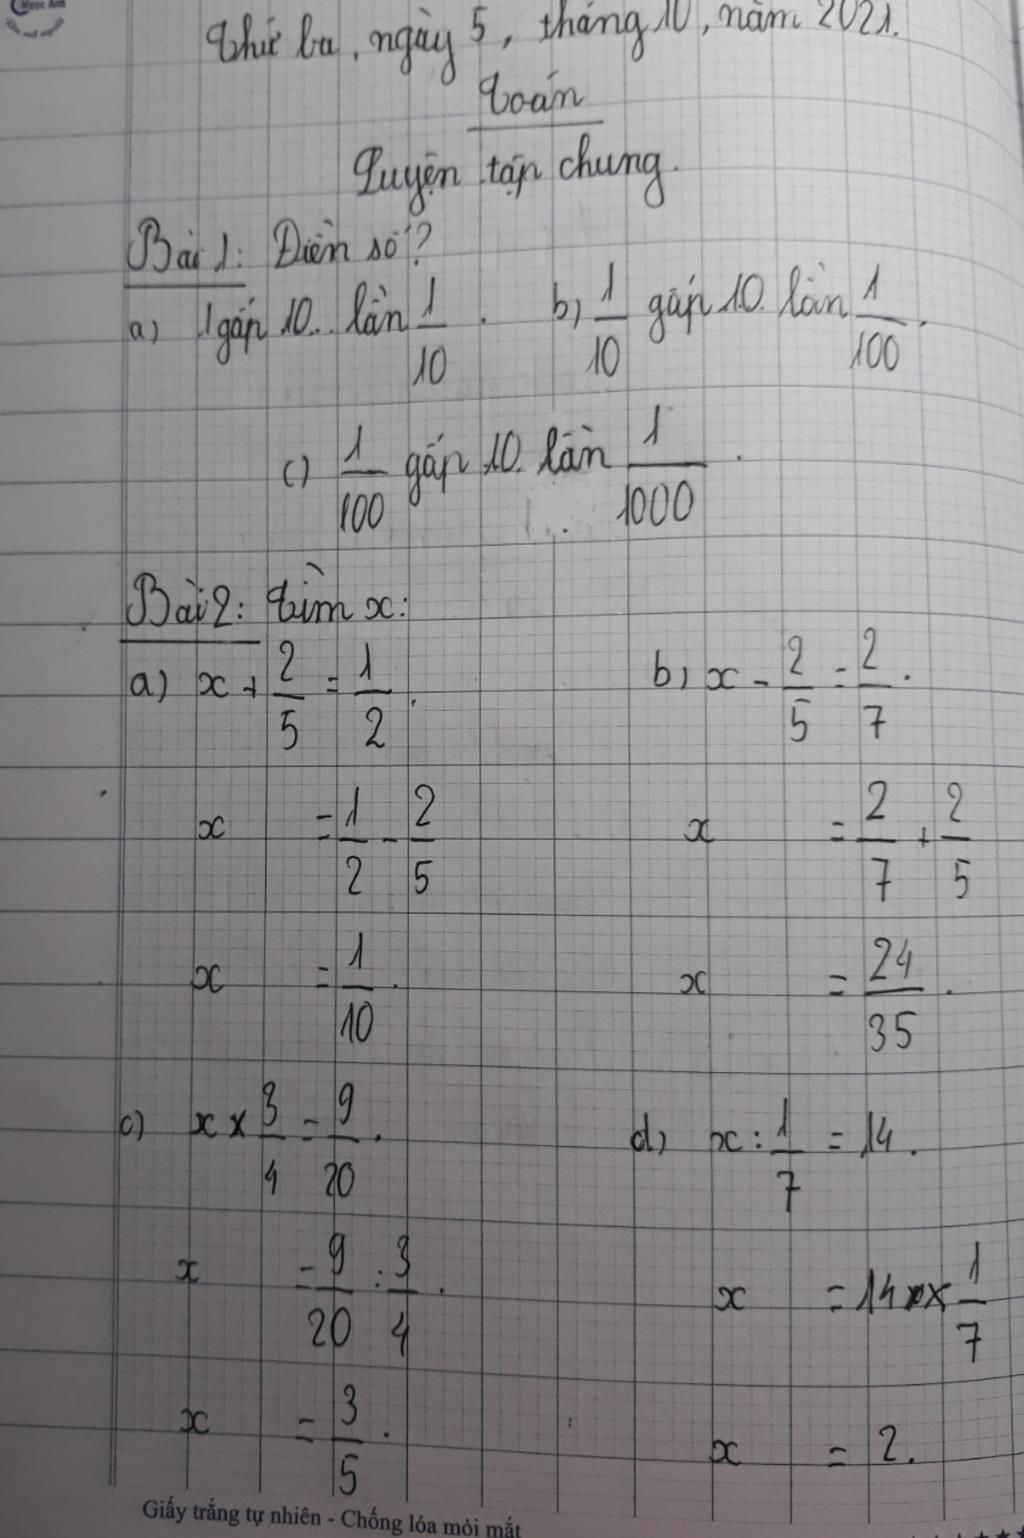 Ngọc Anh
Thứ ba, ngày 5, tháng 10, năm 2021.
Toán
Luyện tập chung.
Bài 1: Điền số?
a) 1 gấp 10.. lần 1/10. b) 1/10 gấp 10. lần 1/100.
c) 1/100 gấp 10. lần 1/1000.
Bài 2: Tìm x:
a) x + 2/5 = 1/2. b) x - 2/5 = 2/7.
x = 1/2 - 2/5 x = 2/7 + 2/5
x = 1/10. x = 24/35.
c) x × 3/4 = 9/20. d) x : 1/7 = 14.
x = 9/20 : 3/4. x = 14 × 1/7
x = 3/5. x = 2.
Giấy trắng tự nhiên - Chống lóa mỏi mắt